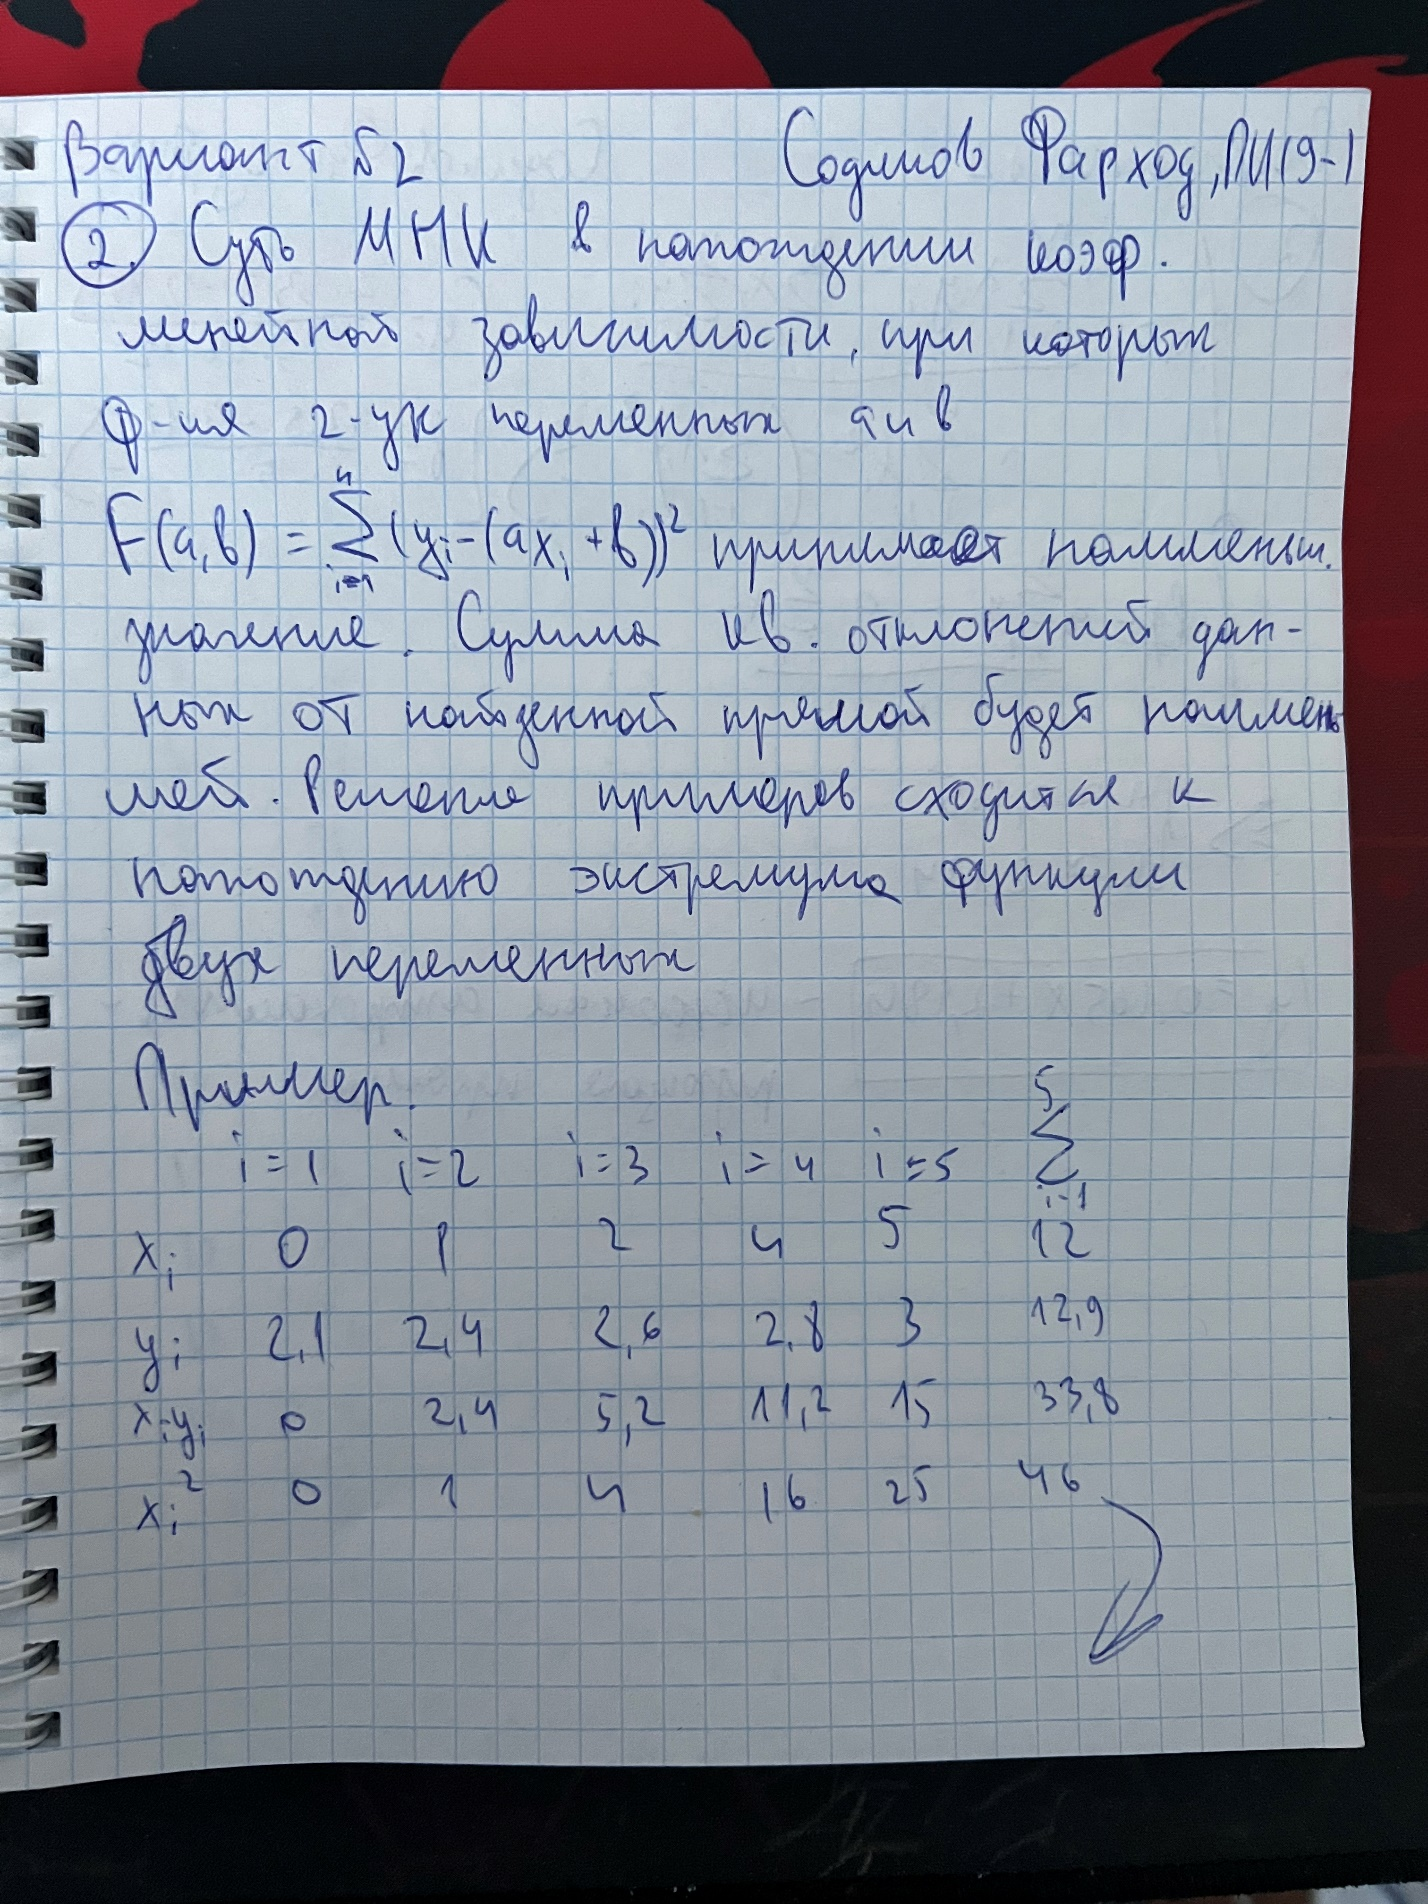 Вариант №2 Содиков Фарход, ПИ19-1
2. Суть МНК в нахождении коэф.
линейной зависимости, при которых
ф-ия 2-ух переменных a и b
F(a,b) = ∑ⁿᵢ₌₁ (yᵢ-(axᵢ+b))² принимает наименьш.
значение. Сумма кв. отклонений дан-
ных от найденной прямой будет наимень
шей. Решение примеров сходится к
нахождению экстремума функции
двух переменных
Пример.
i=1 i=2 i=3 i=4 i=5 ∑⁵ᵢ₌₁
xᵢ 0 1 2 4 5 12
yᵢ 2,1 2,4 2,6 2,8 3 12,9
xᵢyᵢ 0 2,4 5,2 11,2 15 33,8
xᵢ² 0 1 4 16 25 46